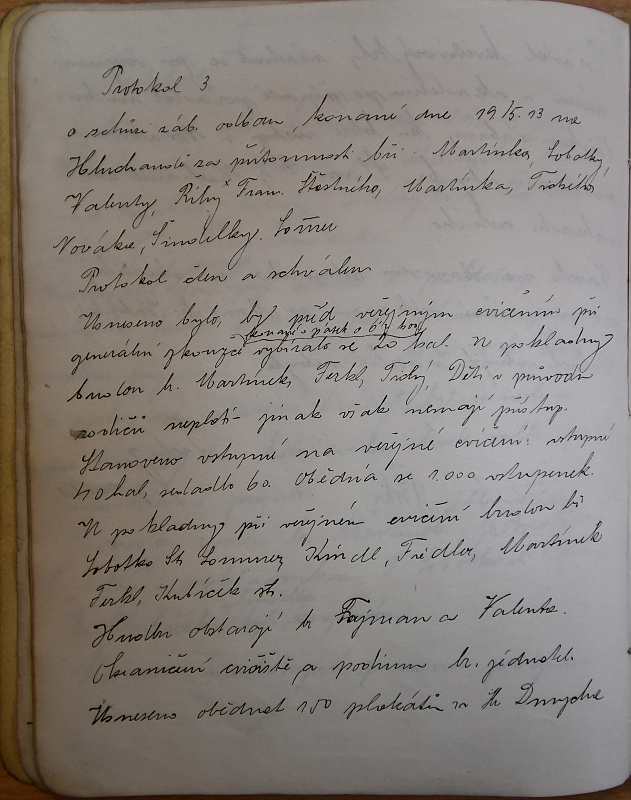 Protokol 3
o schůzi záb. odboru, konané dne 19/5.13 na
za přítomnosti bří: Martínka, Lobotky,
Valenty, Říhy x Fran. Šťastného, Martínka, Tichého
Nováka, Šindelky.
Protokol čten a schválen
Usneseno bylo, by před veřejným cvičením při
konané v pátek o 6 h
generální zkoušce vybíralo se 20 hal. U pokladny
budou br. Martínek, Ferkl, Tichý, Děti v průvodu
rodičů neplatí - jinak však nemají přístup.
Stanoveno vstupné na veřejné cvičení: vstupné
40 hal, sedadlo 60. Obědná se 1.000 vstupenek.
U pokladny při veřejném cvičení budou bř
Lobotka St. Kindl, Fiedler, Martínek
Ferkl, Kubíček st.
Hudbu obstarají br. Fajman a Valenta.
Ohraničení cvičiště a podium br. jednatel.
Usneseno obědnat 150 plakátů u